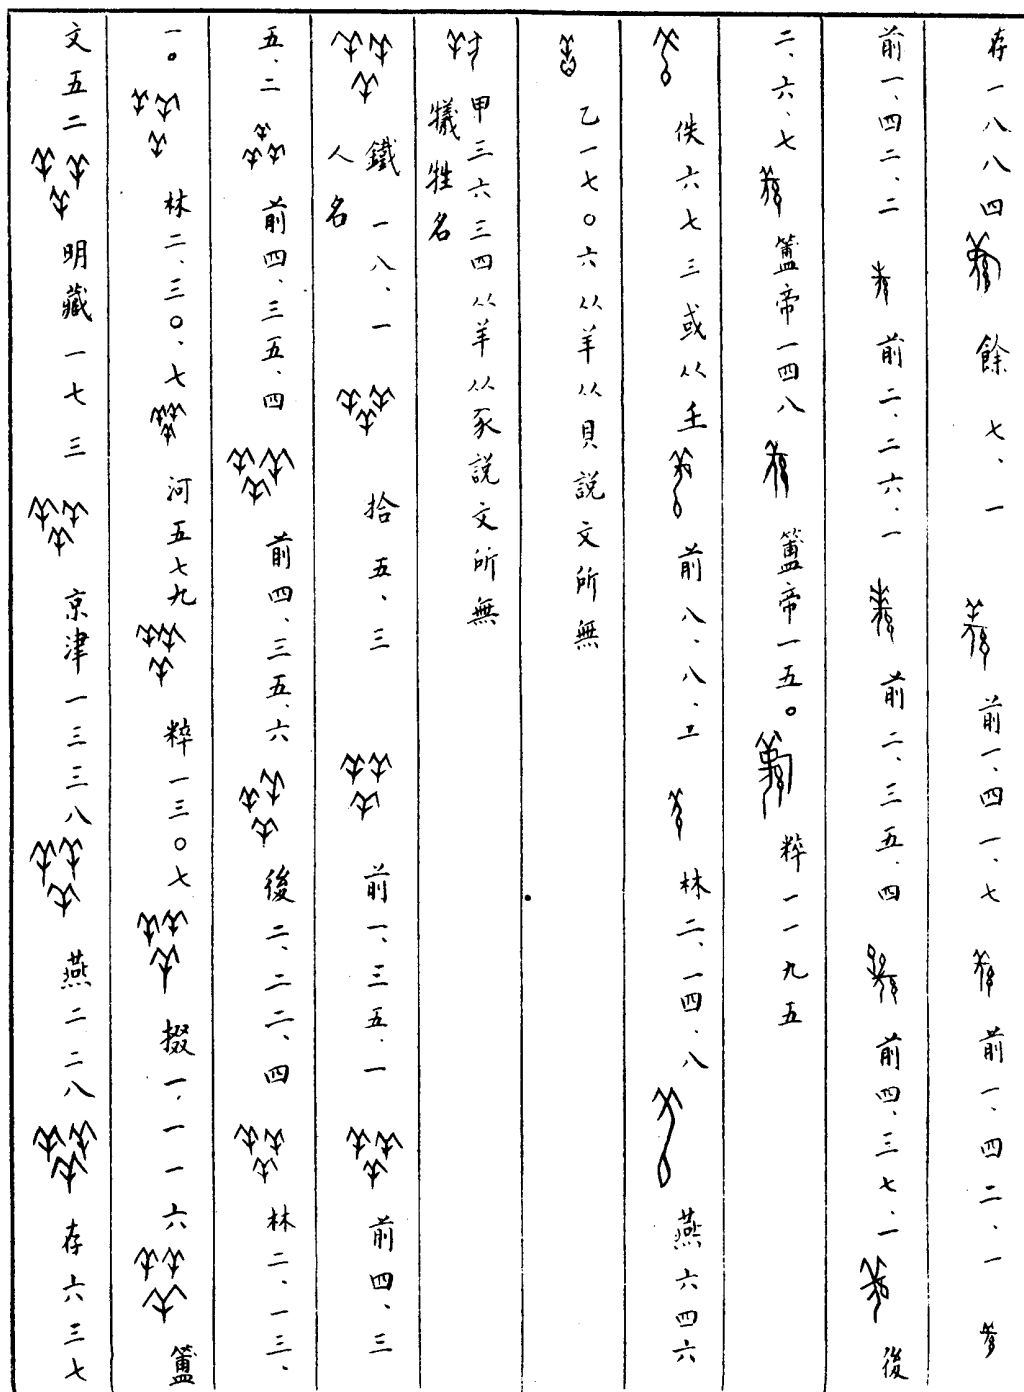 存一八八四 餘七、一 前一、四一、七 前一、四二、一
前一、四二、二 前二、二六、一 前二、三五、四 前四、三七、一 後
二、六、七 簠帝一四八 簠帝一五〇 粹一一九五
佚六七三或从壬 前八、八、二 林二、一四、八 燕六四六
乙一七〇六从羊从貝説文所無
甲三六三四从羊从豕説文所無
犠牲名
鐵一八、一 拾五、三 前一、三五、一 前四、三
人名
五、二 前四、三五、四 前四、三五、六 後二、二二、四 林二、一三、
一〇 林二、三〇、七 河五七九 粹一三〇七 掇一、一一六 簠
文五二 明藏一七三 京津一三三八 燕二二八 存六三七